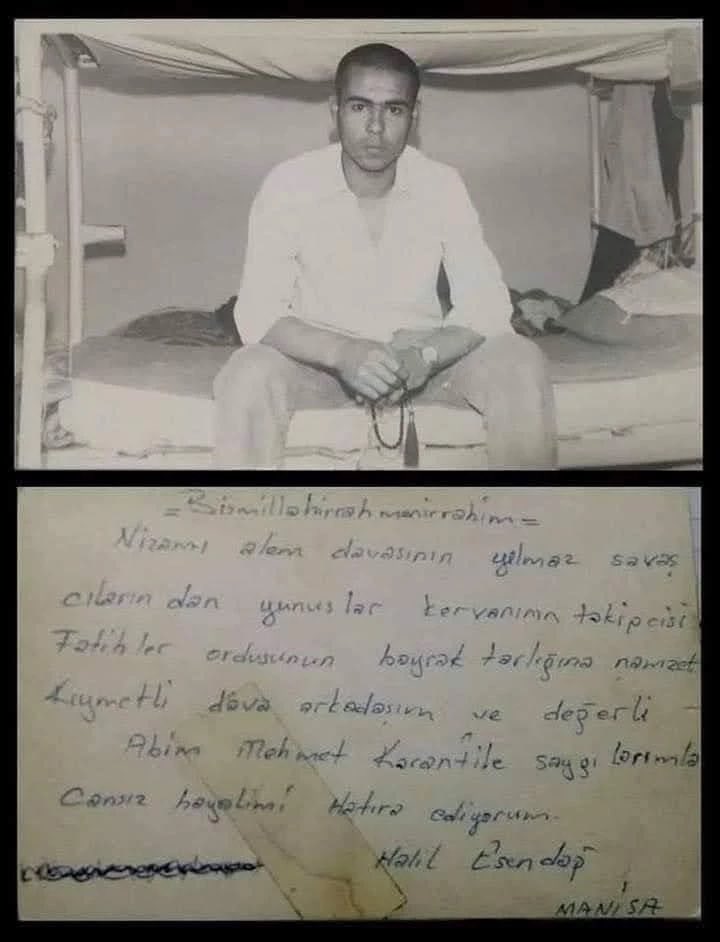 = Bismillahirrahmanirrahim =
Nizamı alem davasının yılmaz savaş
cıların dan yunuslar kervanının takipcisi
Fatihler ordusunun bayrak tarlığına namzet
Kıymetli dava arkadaşım ve değerli
Abim Mehmet Karanfile saygı larımla
Cansız hayalimi Hatıra ediyorum.
Halil Esendağ
MANİSA